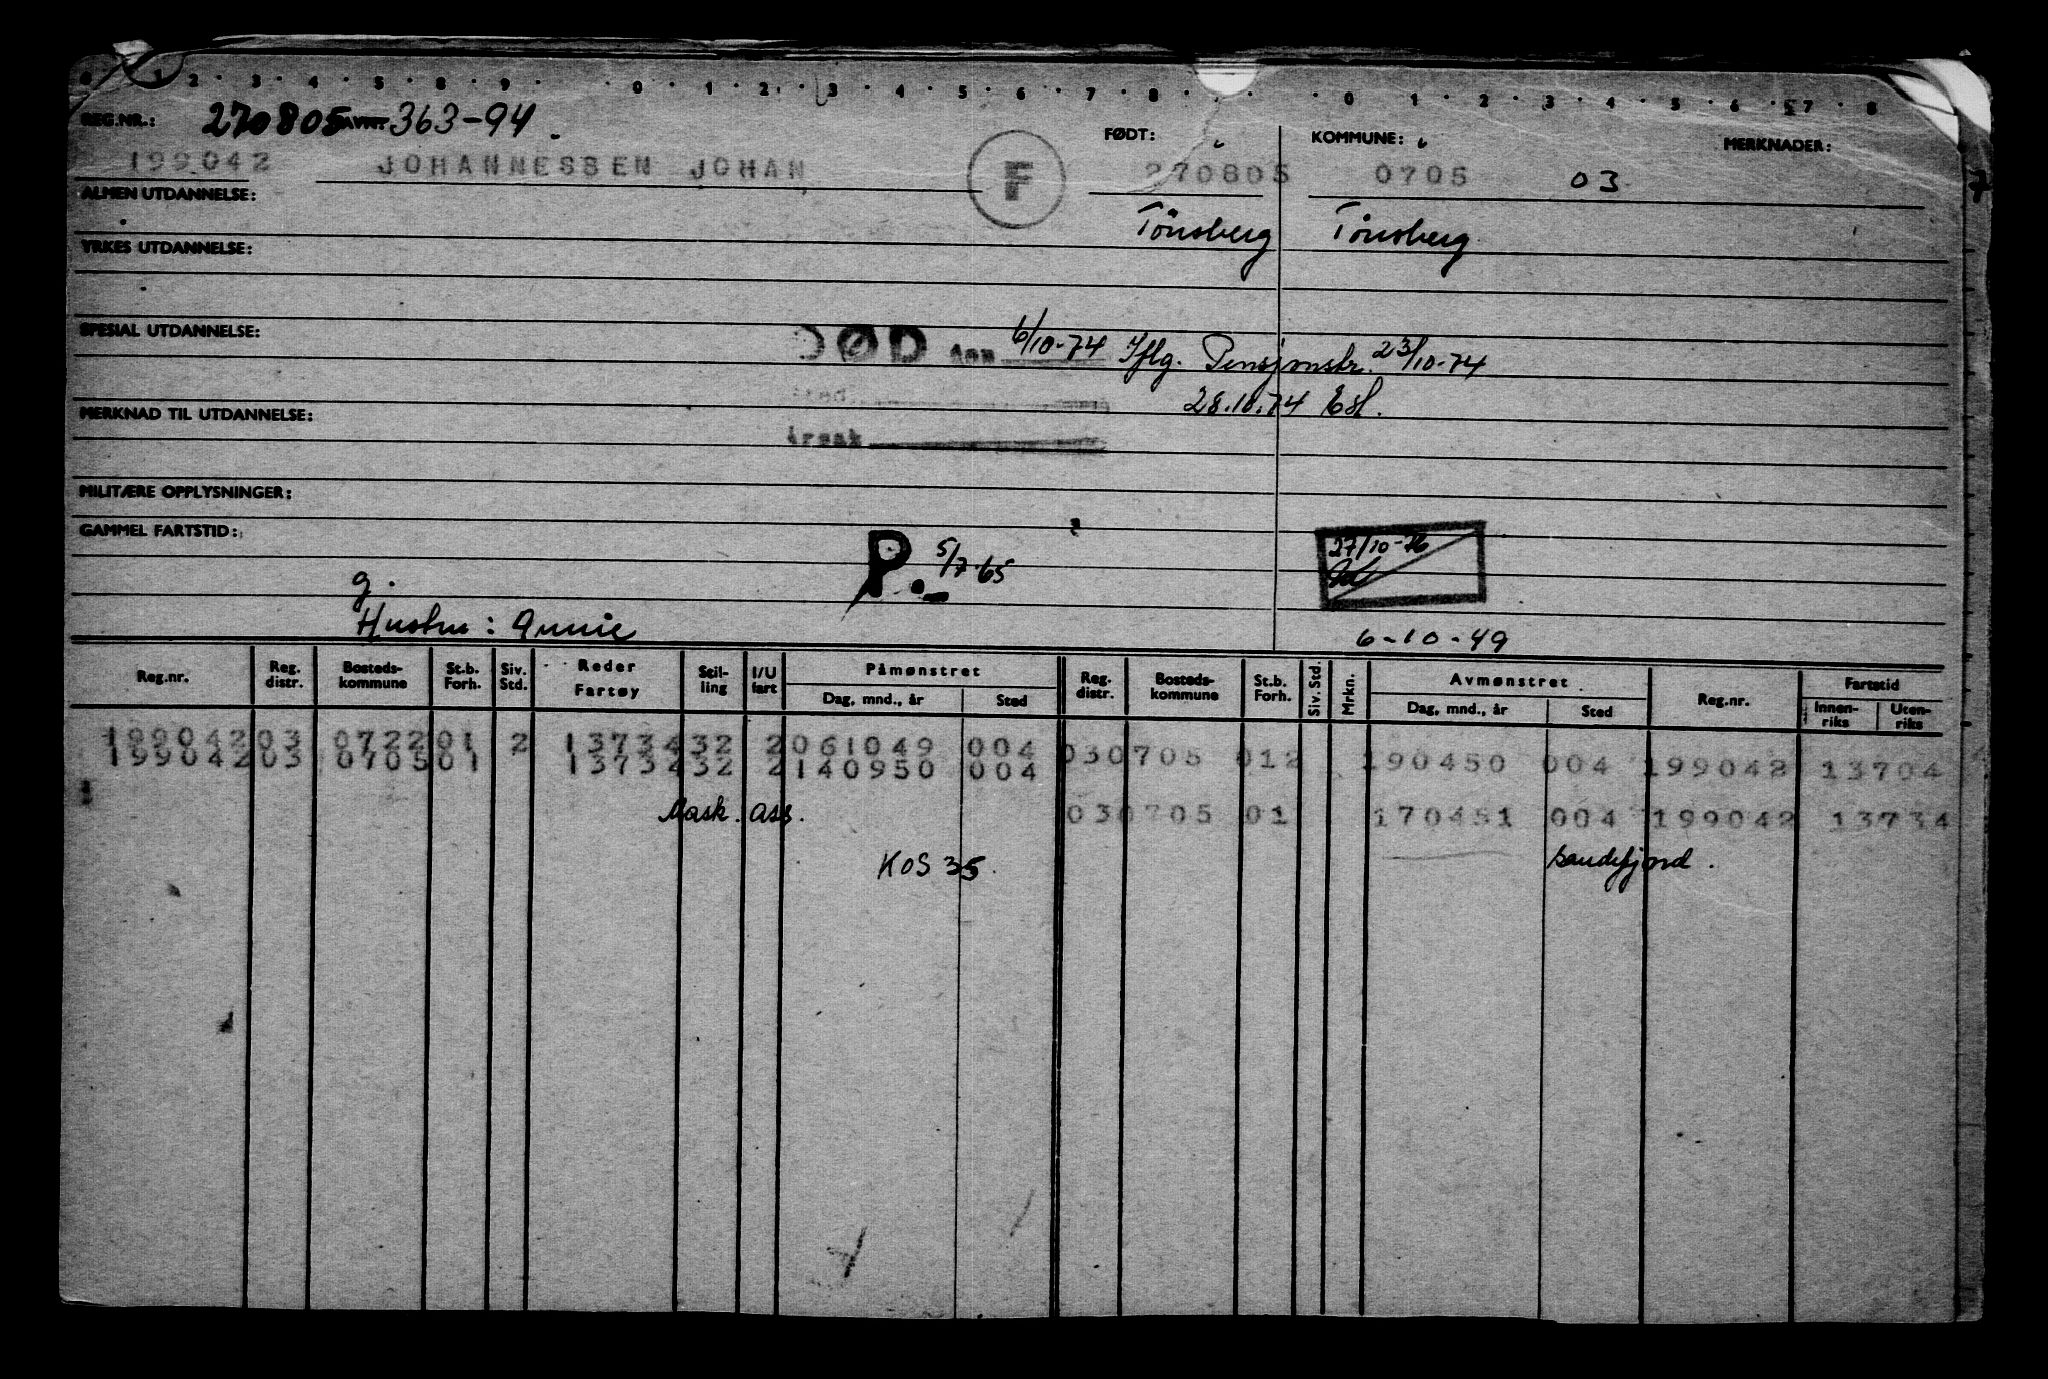 0 · 1 · 2 · 3 · 4 · 5 · 8 · 9 · · 0 · 1 · 2 · 3 · 4 · 5 · 6 · 7 · 8 · · · 0 · 1 · 2 · 3 · 4 · 5 · 6 · 7 · 8
REG.NR.: 270805 NAVN: 363-94. FØDT: KOMMUNE: MERKNADER:
199042 JOHANNESSEN JOHAN F 270805 0705 03
ALMEN UTDANNELSE:
Tönsberg Tönsberg
YRKES UTDANNELSE:
SPESIAL UTDANNELSE:
DØD den 6/10-74 Iflg. Pensjonstr. 23/10-74
sted
28.10.74 Esl.
MERKNAD TIL UTDANNELSE:
årsak
MILITÆRE OPPLYSNINGER:
GAMMEL FARTSTID:
P. 5/7-65 27/10-76
g.
Hustru: Annie
6-10-49
Reg.nr. Reg. distr. Bosteds-kommune St.b. Forh. Siv. Std. Reder Fartøy Stil-ling I/U fart Påmønstret Dag, mnd., år Sted Reg. distr. Bosteds-kommune St.b. Forh. Siv. Std. Mrkn. Avmønstret Dag, mnd., år Sted Reg.nr. Fartstid Innen-riks Uten-riks
199042 03 0722 01 2 13734 32 2 061049 004 03 0705 01 2 190450 004 199042 13704
199042 03 0705 01 13734 32 2 140950 004
Mask. ass. 03 0705 01 170451 004 199042 13734
KOS 35 Sandefjord.